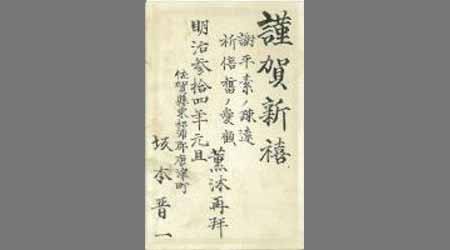 謹賀新禧
謝平素ノ疎遠
祈倍舊ノ愛顧
薫沐再拜
明治参拾四年元旦
佐賀縣東松浦郡唐津町
坂本晋一